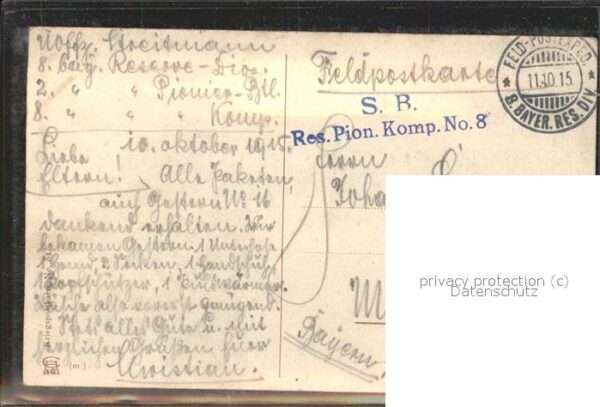 Uoffz. Streitmann
8. bay. Reserve-Div.
2. " " Pionier-Btl.
8. " " Komp.
10. Oktober 1915.
Liebe
Eltern! Alle Paketen,
auch Gestern No 16
dankend erhalten. Wir
bekamen Gestern. 1 Unterhose
1 Hemd, 2 Socken, 1 Handschuh,
1 Kopfschützer, 1
also vorerst genügend.
Alles Gute u. mit
herzlichen Grüßen Euer
Christian.
(m)
Feldpostkarte
S. B.
Res. Pion. Komp. No. 8
FELD-POSTEXPED.
11.10.15
8. BAYER. RES. DIV.
Herrn
Joha
M
Bayern
privacy protection (c)
Datenschutz